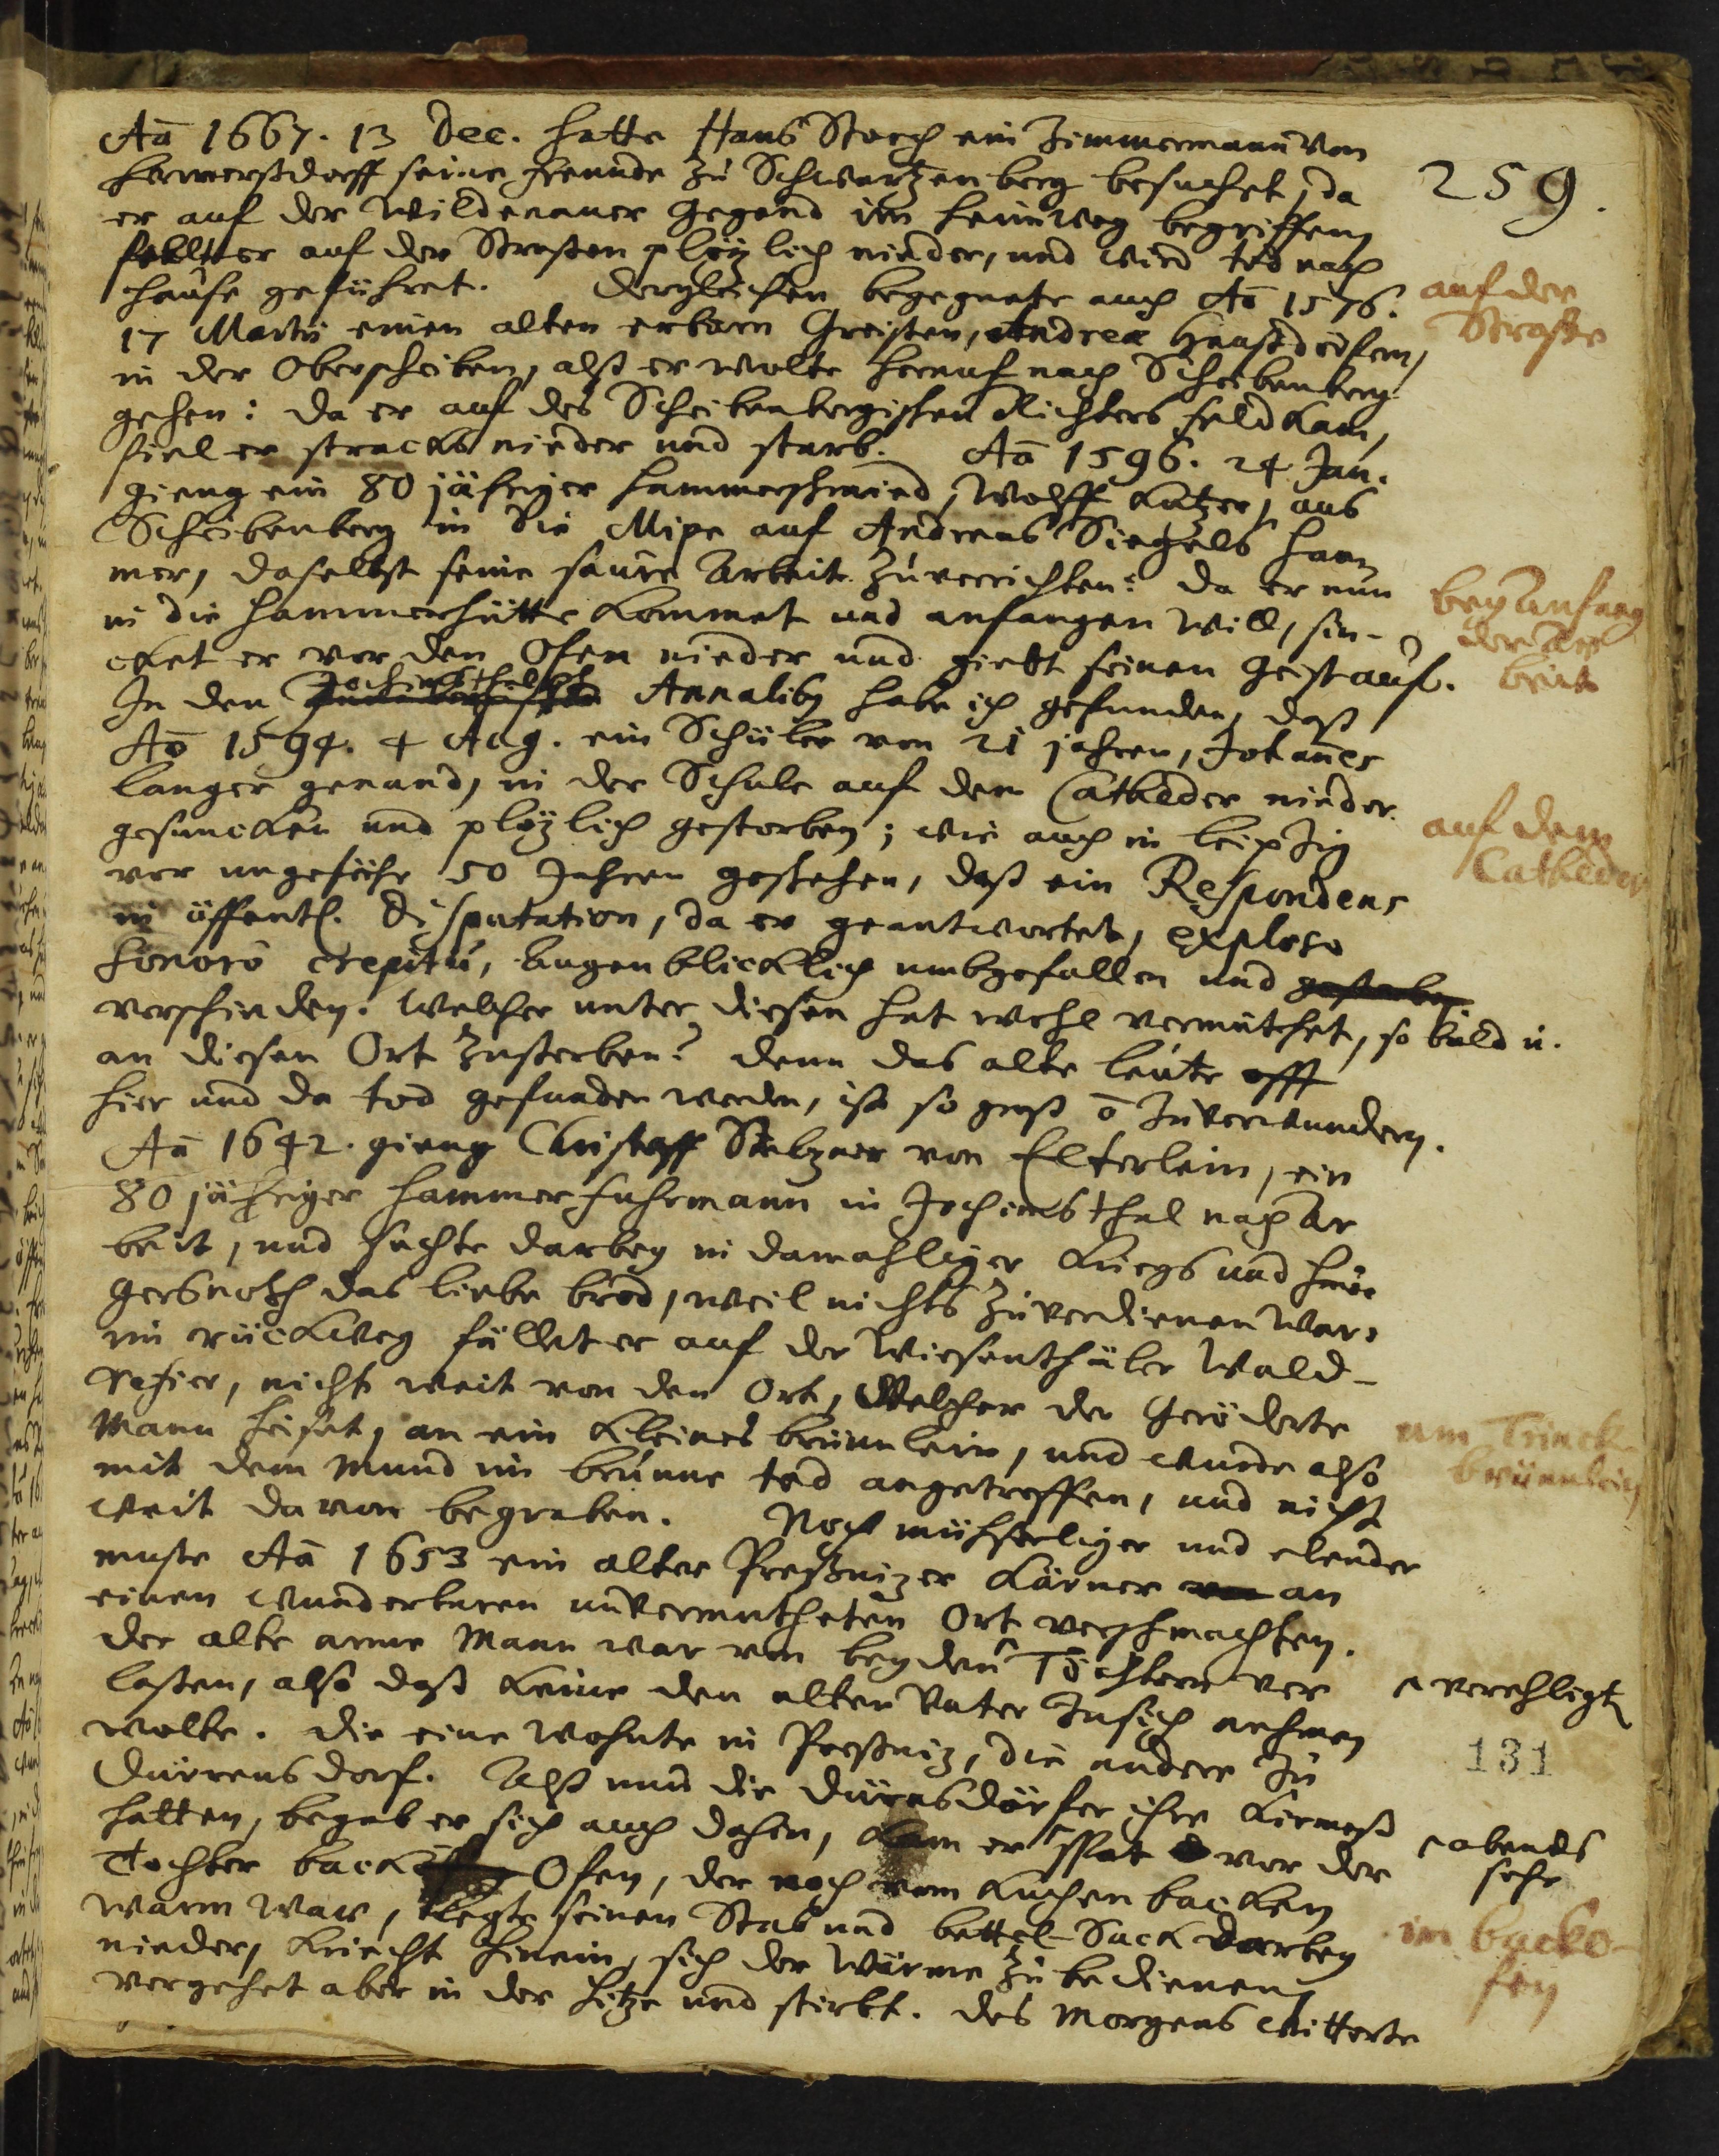 Aō 1667. 13 Dec. hatte Hans Storch ein Zimmermann von
Hermerßdorff seine freunde zu Schwartzenberg besuchet, da
259.
er auf der Wildenauer Gegend im heimweg begriffen,
fellt er auf der Straßen plözlich nieder, und wird tod nach
hause geführet. Dergleichen begegnete auch Aō 1576.
auf der
Straße
17 Martii einen alten erbarn Greisen, Andreæ Hausdörfern,
in der Oberscheiben, alß er wolte herauf nach Scheibenberg
gehen: da er auf des Scheibenbergischen Richters feld kam,
fiel er stracks nieder und starb. Aō 1596. 24. Jan.
gieng ein 80 jähriger hammerschmied, Wolff Kutzer, aus
Scheibenberg in die Mipe auf Andreas Siegels ham
mer, daselbst seine saure Arbeit zuverrichten: da er nun
bey Anfang
der Ar
beit
in die hammerhütte kommet und anfangen will, sin-
cket er vor den Ofen nieder und giebt seinen Geist auf.
Jochimsthalsch
In den Annalibq habe ich gefunden, daß
Aō 1594. 4 Aug. ein Schüler von 21 jahren, Johañes
langer genand, in der Schule auf dem Catheder nieder
auf dem
Catheder
gesuncken und plözlich gestorben; wie auch in leipzig
vor ungefehr 50 Jahren geschehen, daß ein Respondens
in öffentl. Disputation, da er geantwortet, exploso
sonoro crepitu, Augenblicklich umbgefallen und gestorben
verschieden. Welcher unter diesen hat wohl vermuthet, so bald u.
an diesen Ort zusterben? denn das alte leute offt
hier und da tod gefunden werden, ist so groß ō zuverwundern.
Aō 1642. gieng Christoff Stelzner von Elterlein, ein
80 jähriger hammerfuhrmann in Jochimsthal nach Ar
beit, und suchte darbey in damahliger Kriegs und hun
gersnoth das liebe brod, weil nichts zuverdienen war.
im rückweg fället er auf der Wiesenthäler Wald-
refier, nicht weit von den Ort, Welcher der Geröderte
Mann heiset, an ein kleines brünnlein, und wurde also
am Trinck
brünnlein
mit dem Mund im brunne tod angetroffen, und nicht
weit davon begraben. Noch mühseliger und elender
muste Aō 1653 ein alter Preßnizer Kärner an
einen wunderbaren unvermutheten Ort verschmachten.
der alte arme Mann war von beyden Töchtern ver
verehligt
lassen, also daß keine den alten Vater zusich nehmen
wolte. die eine wohnte in Preßniz, die andere zu
131
Dürrensdorf. Alß nun die Dürnsdörfer ihre Kirmeß
hatten, begab er sich auch dahin, kam er spat vor der
abends
sehr
Tochter back Ofen, der noch vom Kuchen backen
warm war, legte seinen Stab und bettel-Sack darbey
im backo-
fen
nieder, kriecht hinein, sich der Wärme zu bedienen,
vergehet aber in der hitze und stirbt. des Morgens witterte